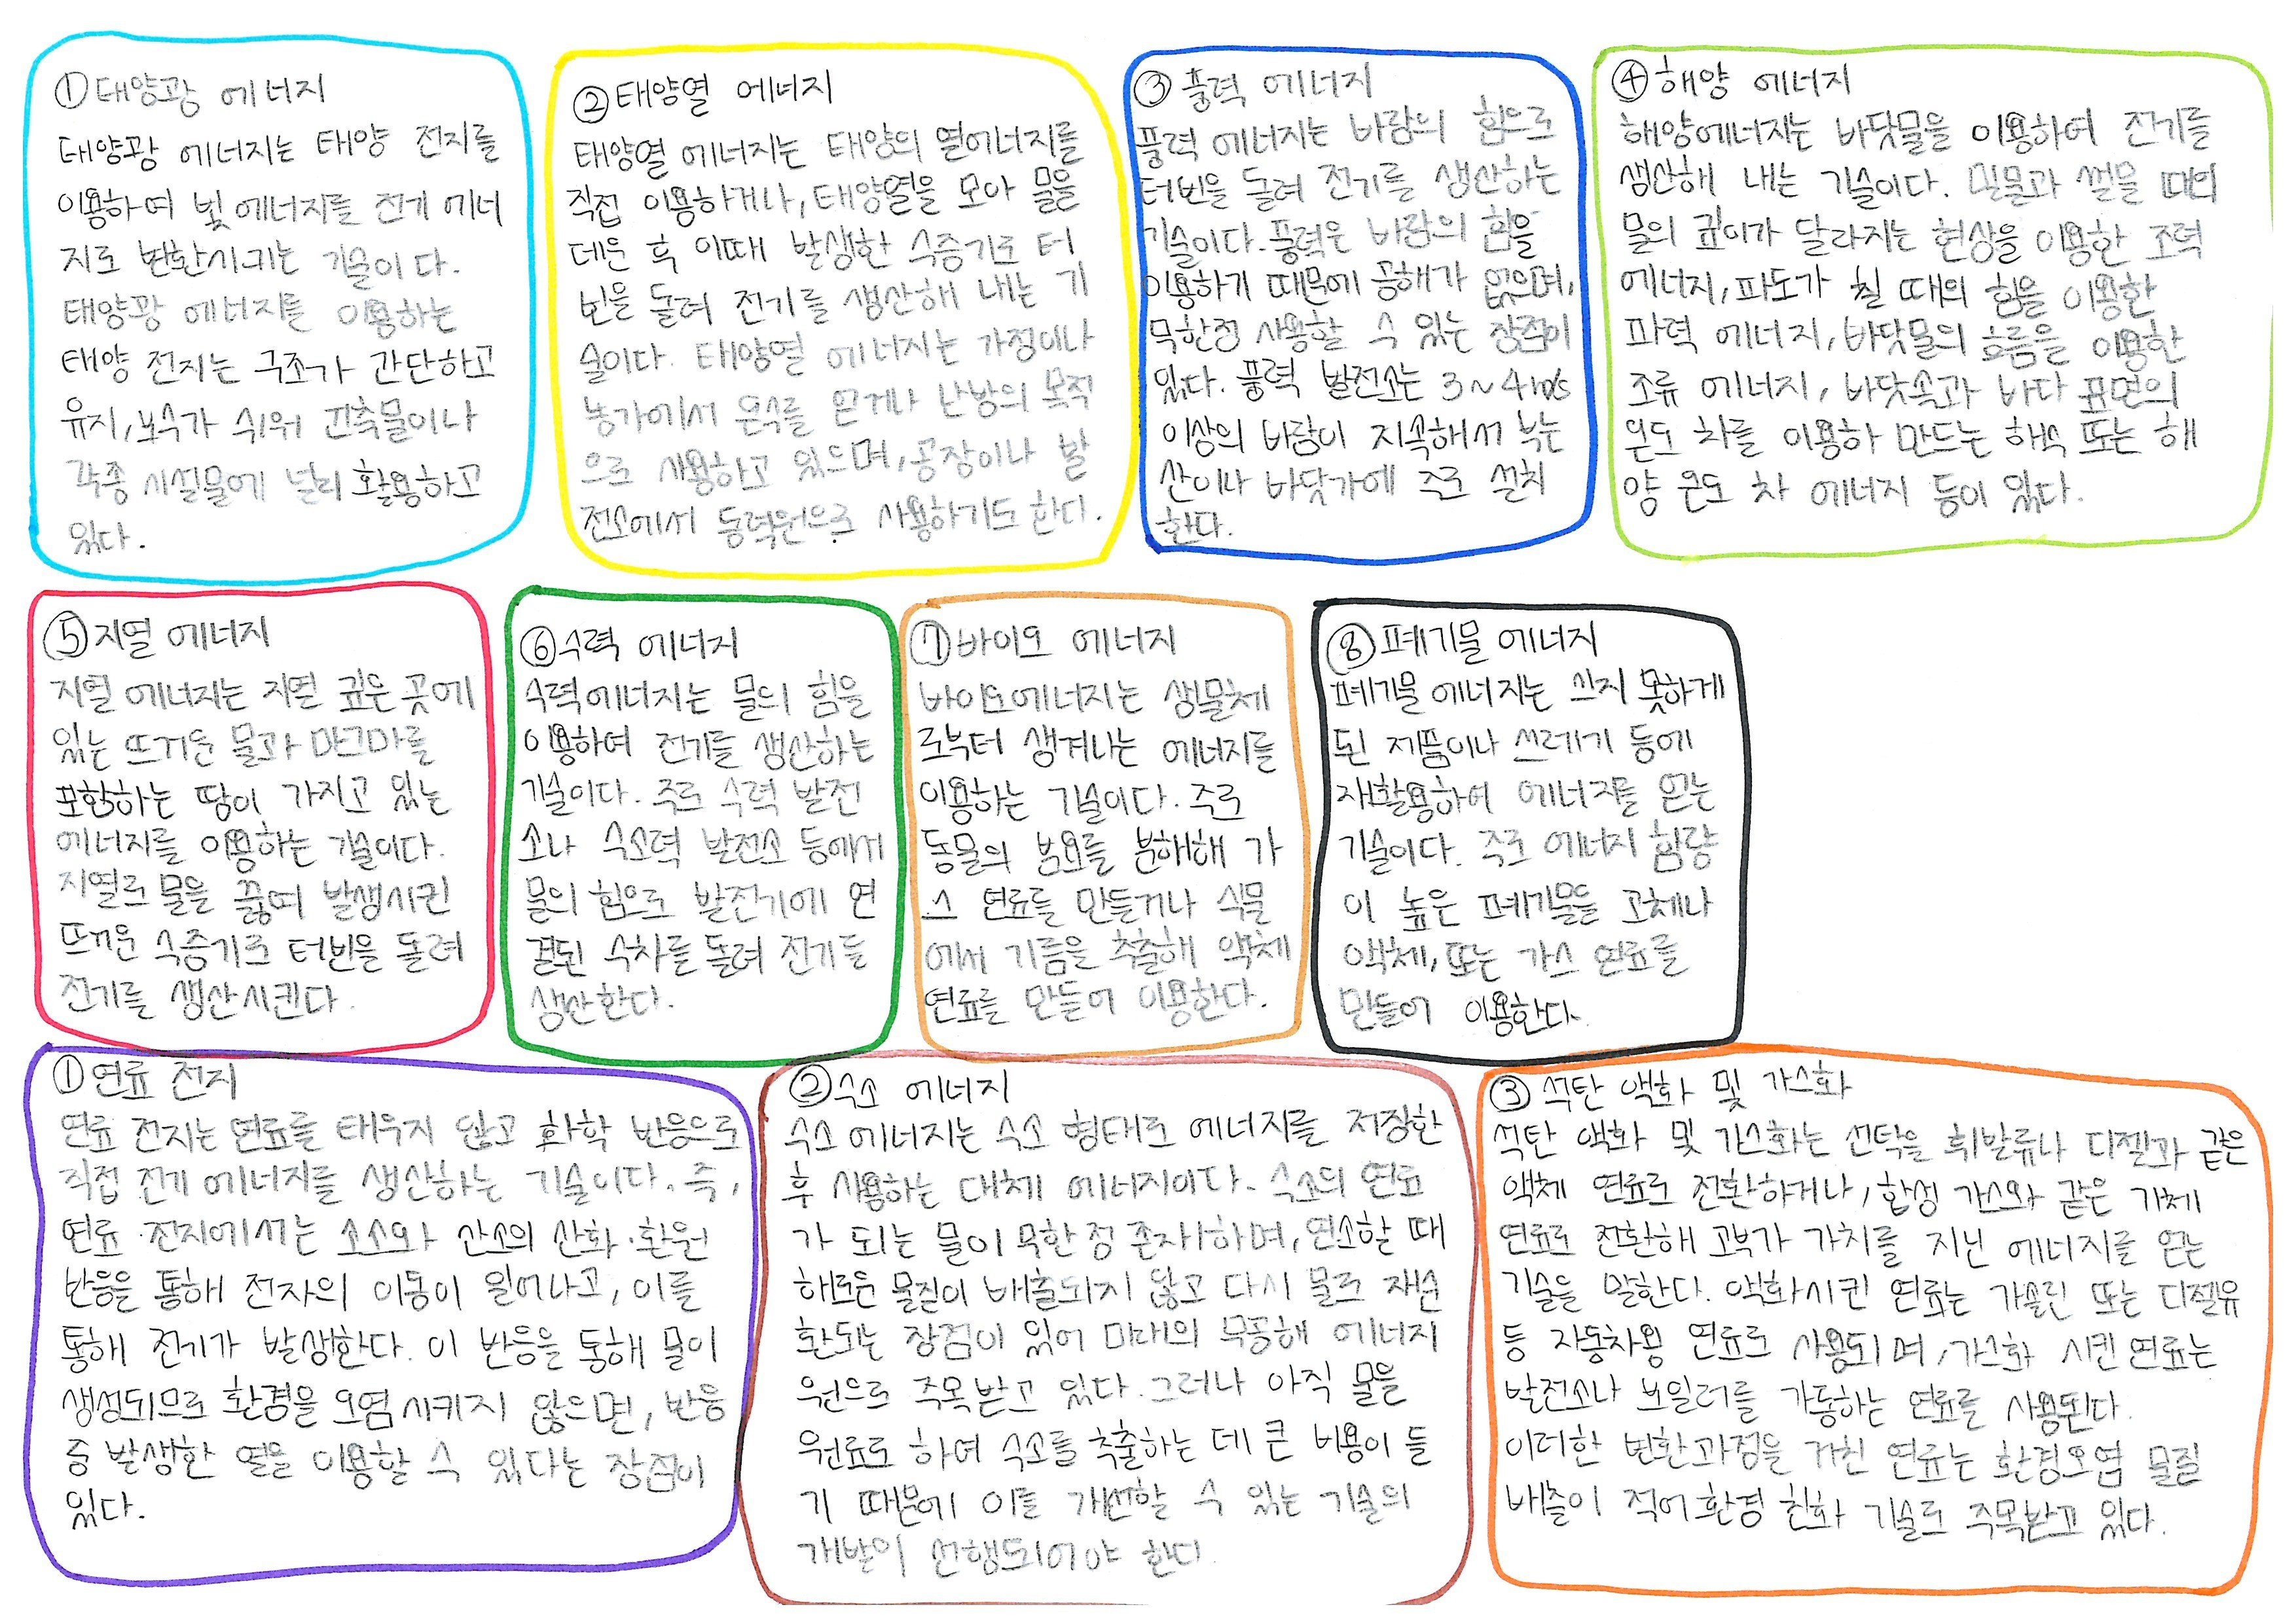 ①태양광 에너지
태양광 에너지는 태양 전지를
이용하여 빛 에너지를 전기 에너
지로 변환시키는 기술이다.
태양광 에너지를 이용하는
태양 전지는 구조가 간단하고
유지, 보수가 쉬워 건축물이나
각종 시설물에 널리 활용하고
있다.
②태양열 에너지
태양열 에너지는 태양의 열에너지를
직접 이용하거나, 태양열을 모아 물을
데운 후 이때 발생한 수증기로 터
빈을 돌려 전기를 생산해 내는 기
술이다. 태양열 에너지는 가정이나
농가에서 온수를 얻거나 난방의 목적
으로 사용하고 있으며, 공장이나 발
전소에서 동력원으로 사용하기도 한다.
③풍력 에너지
풍력 에너지는 바람의 힘으로
터빈을 돌려 전기를 생산하는
기술이다. 풍력은 바람의 힘을
이용하기 때문에 공해가 없으며,
무한정 사용할 수 있는 장점이
있다. 풍력 발전소는 3~4m/s
이상의 바람이 지속해서 부는
산이나 바닷가에 주로 설치
한다.
④해양 에너지
해양에너지는 바닷물을 이용하여 전기를
생산해 내는 기술이다. 밀물과 썰물 때의
물의 깊이가 달라지는 현상을 이용한 조력
에너지, 파도가 칠 때의 힘을 이용한
파력 에너지, 바닷물의 흐름을 이용한
조류 에너지, 바닷속과 바다 표면의
온도 차를 이용하 만드는 해수 또는 해
양 온도 차 에너지 등이 있다.
⑤지열 에너지
지열 에너지는 지면 깊은 곳에
있는 뜨거운 물과 마그마를
포함하는 땅이 가지고 있는
에너지를 이용하는 기술이다.
지열로 물을 끓여 발생시킨
뜨거운 수증기로 터빈을 돌려
전기를 생산시킨다.
⑥수력 에너지
수력에너지는 물의 힘을
이용하여 전기를 생산하는
기술이다. 주로 수력 발전
소나 수소력 발전소 등에서
물의 힘으로 발전기에 연
결된 수차를 돌려 전기를
생산한다.
⑦바이오 에너지
바이오에너지는 생물체
로부터 생겨나는 에너지를
이용하는 기술이다. 주로
동물의 분뇨를 분해해 가
스 연료를 만들거나 식물
에서 기름을 추출해 액체
연료를 만들어 이용한다.
⑧폐기물 에너지
폐기물 에너지는 쓰지 못하게
된 제품이나 쓰레기 등에
재활용하여 에너지를 얻는
기술이다. 주로 에너지 함량
이 높은 폐기물을 고체나
액체, 또는 가스 연료를
만들어 이용한다.
①연료 전지
연료 전지는 연료를 태우지 않고 화학 반응으로
직접 전기 에너지를 생산하는 기술이다. 즉,
연료 전지에서는 소소와 산소의 산화·환원
반응을 통해 전자의 이동이 일어나고, 이를
통해 전기가 발생한다. 이 반응을 통해 물이
생성되므로 환경을 오염시키지 않으면, 반응
중 발생한 열을 이용할 수 있다는 장점이
있다.
②수소 에너지
수소 에너지는 수소 형태로 에너지를 저장한
후 사용하는 대체 에너지이다. 수소의 연료
가 되는 물이 무한정 존재하며, 연소할 때
해로운 물질이 배출되지 않고 다시 물로 재순
환되는 장점이 있어 미래의 무공해 에너지
원으로 주목받고 있다. 그러나 아직 물을
원료로 하여 수소를 추출하는 데 큰 비용이 들
기 때문에 이를 개선할 수 있는 기술의
개발이 선행되어야 한다.
③석탄 액화 및 가스화
석탄 액화 및 가스화는 선탁을 휘발류나 디젤과 같은
액체 연료로 전환하거나, 합성 가스와 같은 기체
연료로 전환해 고부가 가치를 지닌 에너지를 얻는
기술을 말한다. 액화시킨 연료는 가솔린 또는 디젤유
등 자동차용 연료로 사용되며, 가스화 시킨 연료는
발전소나 보일러를 가동하는 연료를 사용된다.
이러한 변환과정을 거친 연료는 환경오염 물질
배출이 적어 환경 친화 기술로 주목받고 있다.